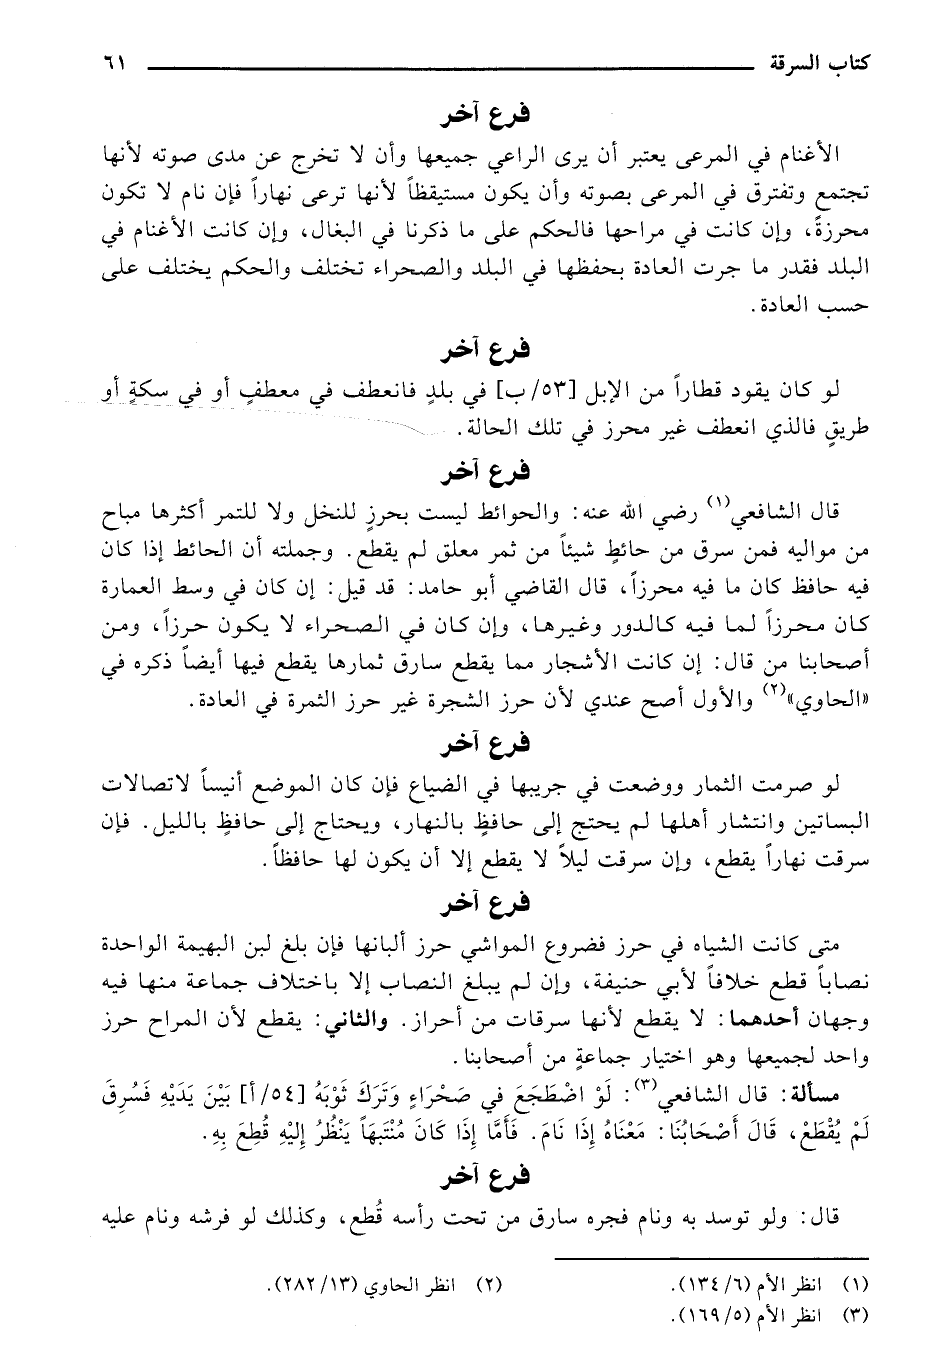 كتاب السرقة ٦١
فرع آخر
الأغنام في المرعى يعتبر أن يرى الراعي جميعها وأن لا تخرج عن مدى صوته لأنها
تجتمع وتفترق في المرعى بصوته وأن يكون مستيقظاً لأنها ترعى نهاراً فإن نام لا تكون
محرزةً، وإن كانت في مراحها فالحكم على ما ذكرنا في البغال، وإن كانت الأغنام في
البلد فقدر ما جرت العادة بحفظها في البلد والصحراء تختلف والحكم يختلف على
حسب العادة.
فرع آخر
لو كان يقود قطاراً من الإبل [٥٣/ ب] في بلدٍ فانعطف في معطفٍ أو في سكةٍ أو
طريقٍ فالذي انعطف غير محرز في تلك الحالة.
فرع آخر
قال الشافعي(١) رضي الله عنه: والحوائط ليست بحرزٍ للنخل ولا للتمر أكثرها مباح
من مواليه فمن سرق من حائطٍ شيئاً من ثمر معلق لم يقطع. وجملته أن الحائط إذا كان
فيه حافظ كان ما فيه محرزاً، قال القاضي أبو حامد: قد قيل: إن كان في وسط العمارة
كان محرزاً لما فيه كالدور وغيرها، وإن كان في الصحراء لا يكون حرزاً، ومن
أصحابنا من قال: إن كانت الأشجار مما يقطع سارق ثمارها يقطع فيها أيضاً ذكره في
«الحاوي»(٢) والأول أصح عندي لأن حرز الشجرة غير حرز الثمرة في العادة.
فرع آخر
لو صرمت الثمار ووضعت في جريبها في الضياع فإن كان الموضع أنيساً لاتصالات
البساتين وانتشار أهلها لم يحتج إلى حافظٍ بالنهار، ويحتاج إلى حافظٍ بالليل. فإن
سرقت نهاراً يقطع، وإن سرقت ليلاً لا يقطع إلا أن يكون لها حافظاً.
فرع آخر
متى كانت الشياه في حرز فضروع المواشي حرز ألبانها فإن بلغ لبن البهيمة الواحدة
نصاباً قطع خلافاً لأبي حنيفة، وإن لم يبلغ النصاب إلا باختلاف جماعة منها فيه
وجهان أحدهما: لا يقطع لأنها سرقات من أحراز. والثاني: يقطع لأن المراح حرز
واحد لجميعها وهو اختيار جماعةٍ من أصحابنا.
مسألة: قال الشافعي(٣): لَوْ اضْطَجَعَ في صَحْرَاءٍ وَتَرَكَ ثَوْبَهُ [٥٤/ أ] بَيْنَ يَدَيْهِ فَسُرِقَ
لَمْ يُقْطَعْ، قَالَ أَصْحَابُنَا: مَعْنَاهُ إِذَا نَامَ. فَأَمَّا إِذَا كَانَ مُنْتَبِهَاً يَنْظُرُ إِلَيْهِ قُطِعَ بِهِ.
فرع آخر
قال: ولو توسد به ونام فجره سارق من تحت رأسه قُطع، وكذلك لو فرشه ونام عليه
(١) انظر الأم (٦/ ١٣٤). (٢) انظر الحاوي (١٣/ ٢٨٢).
(٣) انظر الأم (٥/ ١٦٩).